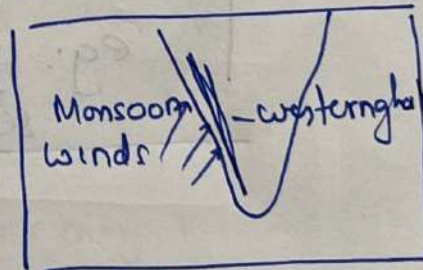 Monsoon
winds
- westerngha
eg: